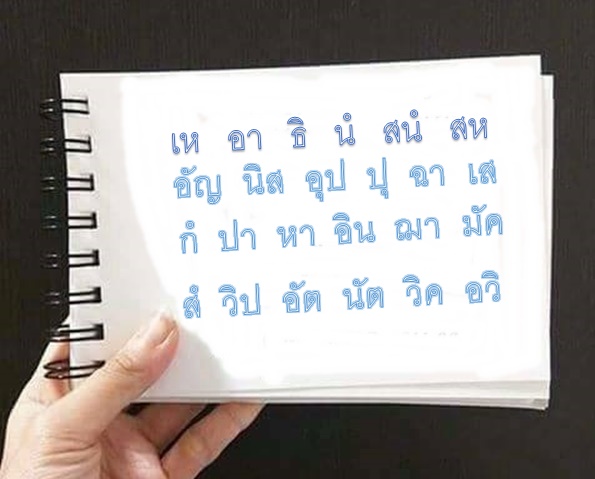 เห อา ธิ นํ สนํ สห
อัญ นิส อุป ปุ ฉา เส
กํ ปา หา อิน ฌา มัค
สํ วิป อัต นัต วิค อวิ